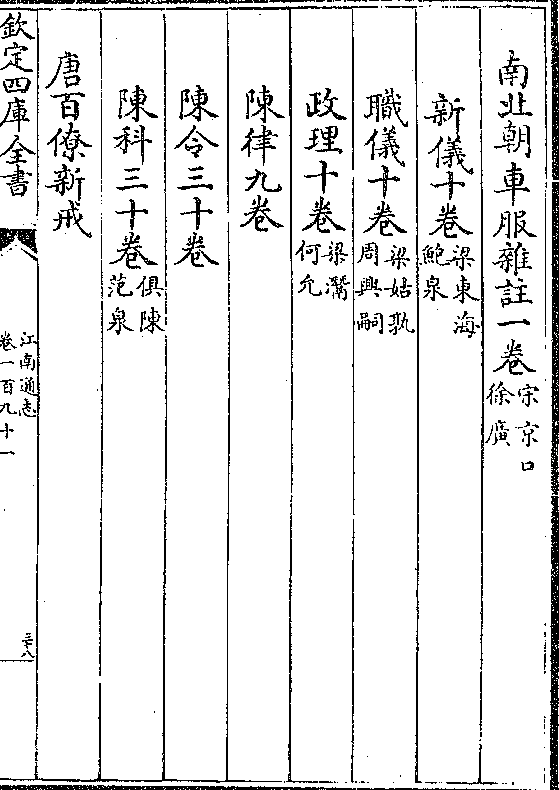 南北朝車服雜註一卷宋京口徐廣
新儀十卷梁東海鮑泉
職儀十卷梁姑孰周興嗣
政理十卷梁灊何允
陳律九卷
陳令三十卷
陳科三十卷俱陳范泉
唐百僚新戒
欽定四庫全書
江南通志
卷一百九十一
三十八